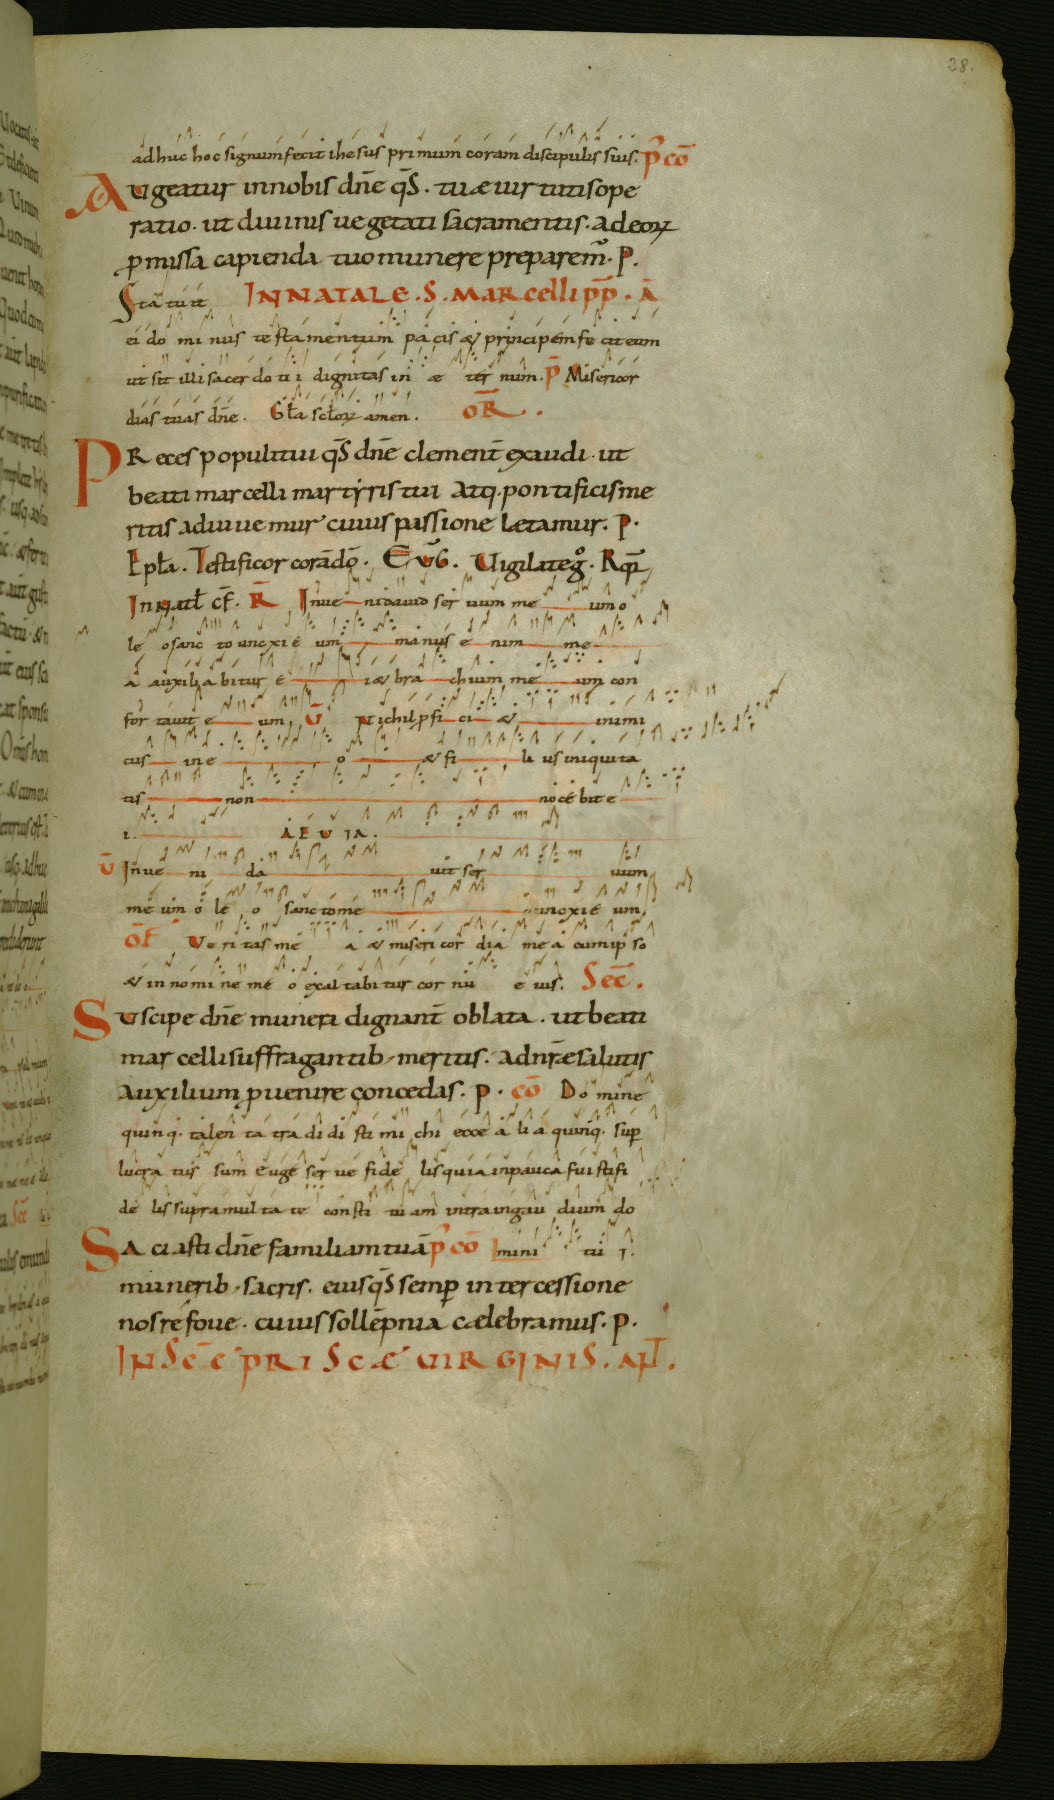 28.
adhuc hoc signum fecit ihesus primum coram discipulis suis. p̄ cō
Augeatur innobis dn̄e q̄s. tuæ uirtutis ope
ratio. ut diuinis uegetati sacramentis. adeoꝝ
ꝓmissa capienda tuo munere preparem̄. P.
Statuit INNATALE. S. MARcelli pp̄. Ā
ei do mi nus te stamentum pacis & principem fe cit eum
ut sit illi sacer do ti i dignitas in æ ter num. p̄ Misericor
dias tuas dn̄e. Gl̄a scl̄oꝝ amen. oR̄.
PReces populi tui q̄s dn̄e clement̄ exaudi. ut
beati marcelli martyris tui Atq. pontificis me
ritis adiuuemur cuius passione letamur. P.
Epl̄a. Testificor corā dō. Eūg. Uigilate g̊. Rq̄
Innatl̄ cf̄. R̄ Inue ni dauid ser uum me um o
le o sanc to unc xi e um manus e nim me
a auxili abitur e i & bra chium me um con
for tauit e um, V̄ Nichil ꝓfi ci & inimi
cus in e o & fi li us iniquita
tis non nocebit e
i. AEUIA.
V̄ Inue ni da uit ser uum
me um o le o sanc to me unoxi e um,
OF̄ Ueritas me a & misericor dia me a cum ip̄ so
& in no mi ne me o exaltabitur cor nu e ius. Sec̄.
Suscipe dn̄e munera dignant̄ oblata. ut beati
marcelli suffragantib. meritis. ad nr̄æ salutis
auxilium ꝓuenire concedas. P. cō Domine
quinq. talen ta tra di di sti mi chi ecce a li a quinq. sup̄
lucra tus sum Euge ser ue fide lis quia in pauca fuisti fi
de lis supra mul ta te consti tu am intra in gau dium do
Saciasti dn̄e familiam tuā p̄ cō mini tu i.
munerib. sacris. eiusq̄s semp̄ intercessione
nos refoue. cuius sollēpnia cælebramus. P.
IN Sc̄c̄ PRISCÆ UIRGINIS. AÑ.